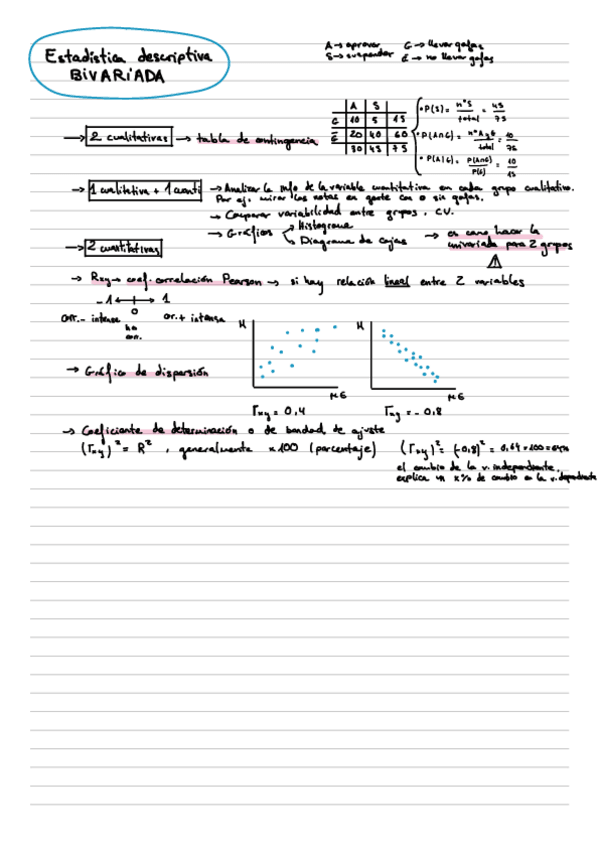 Estadística descriptiva
BIVARIADA
A → aprovar G → llevar gafas
S → suspender G̅ → no llevar gafas
A S
G 10 5 15
G̅ 20 40 60
30 45 75
• P(S) = nº S / total = 45 / 75
• P(A∩G) = nº A y G / total = 10 / 75
• P(A|G) = P(A∩G) / P(G) = 10 / 15
→ 2 cualitativas → tabla de contingencia
→ 1 cualitativa + 1 cuanti → Analizar la info de la variable cuantitativa en cada grupo cualitativo.
Por ej. mirar las notas en gente con o sin gafas.
→ Comparar variabilidad entre grupos, CV.
→ Gráficos Histograma
Diagrama de cajas
→ es como hacer la
univariada para 2 grupos
→ 2 cuantitativas
→ Rxy → coef. correlación Pearson → si hay relación lineal entre 2 variables
-1 ← → 1
0
corr. - intensa cor. + intensa
no
corr.
→ Gráfico de dispersión
H H
rxy = 0,4 rxy = -0,8
→ Coeficiente de determinación o de bondad de ajuste
(rxy)² = R², generalmente x100 (porcentaje) (rxy)² = (-0,8)² = 0,64 · 100 = 64%
el cambio de la v. independiente,
explica un x% de cambio en la v. dependiente